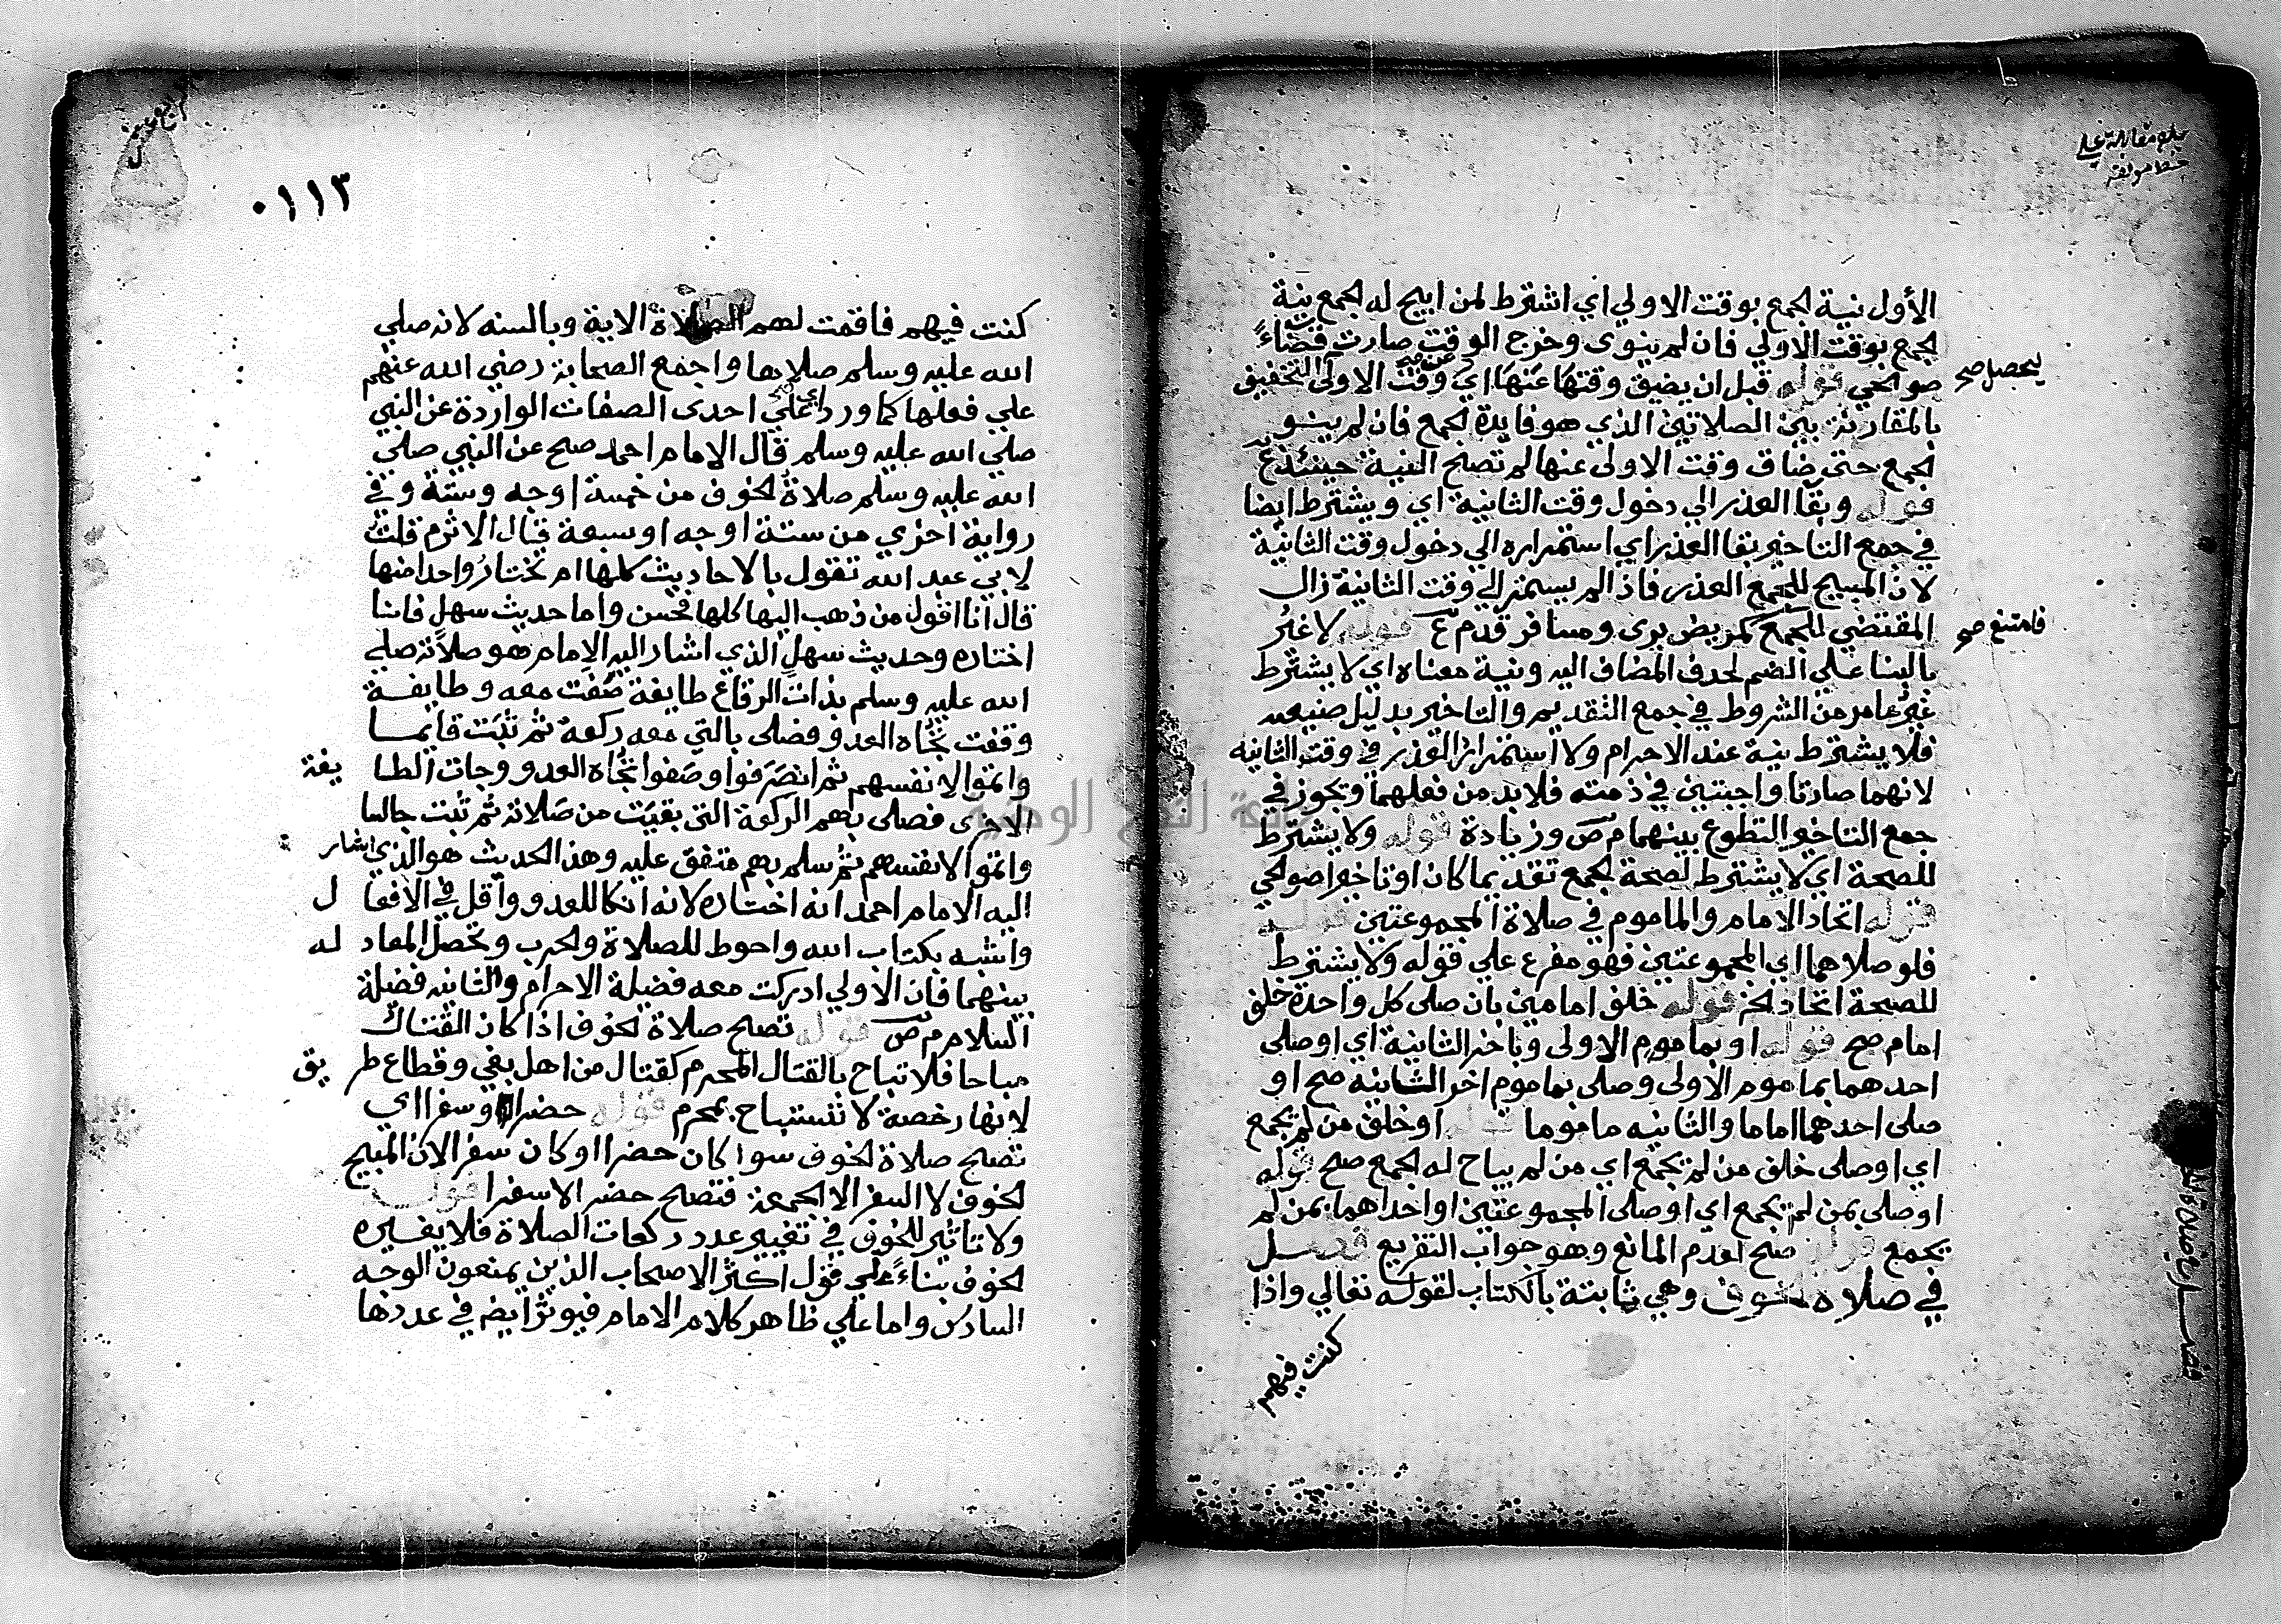 بلغ مقابلة علي
خط مولفه
الأول نية لجمع بوقت الاولي اي اشترط لمن ابيح له لجمع نية
لجمع بوقت الاولي فان لم ينوي وخرج الوقت صارت قضاءً
صوالحي قوله قبل ان يضيق وقتها عنها اي وقت الاولى التحقيق
ليحصل صح
بالمقارنة بين الصلاتين الذي هو فايدة لجمع فان لم ينو
لجمع حتى ضاق وقت الاولى عنها لم تصح النية حينئذ ع
قوله وبقا العذر الي دخول وقت الثانية اي ويشترط ايضا
في جمع التاخير بقا العذر اي استمراره الي دخول وقت الثانية
لان المبيح للجمع العذر فاذا لم يستمر الي وقت الثانية زال
المقتضي للجمع كمريض بري ومسافر قدم ع قوله لا غيرُ
فامتنع صح
بالبنا علي الضم لحذف المضاف اليه ونية معناه اي لا يشترط
غير ما مر من الشروط في جمع التقديم والتاخير بدليل صنيعه
فلا يشترط نية عند الاحرام ولا استمرار العذر في وقت الثانيه
لانهما صارتا واجبتين في ذمته فلا بد من فعلهما ويجوز في
جمع التاخير التطوع بينهما م ص وزيادة قوله ولا يشترط
للصحة اي لا يشترط لصحة لجمع تقديما كان او تاخيرا صوالحي
قوله اتحاد الامام والماموم في صلاة المجموعتين قوله
فلو صلاهما اي المجموعتين فهو مفرع علي قوله ولا يشترط
للصحة اتحاد لخ قوله خلف امامين بان صلى كل واحدة خلف
امام صح قوله او بماموم الاولى وباخر الثانية اي او صلى
احدهما بماموم الاولى وصلى بماموم اخر الثانيه صح او
صلى احدهما اماما والثانيه ماموما قوله او خلف من لم يجمع
اي او صلى خلف من لم يجمع اي من لم يباح له لجمع صح قوله
او صلى بمن لم يجمع اي او صلى المجموعتين او احداهما بمن لم
يجمع قوله صح لعدم المانع وهو جواب التفريع فصل
في صلاة لخوف وهي ثابتة بالكتاب لقوله تعالي واذا
كنت فيهم
فصل صلاة
٠١١٣
كنت فيهم فاقمت لهم الصلاة الاية وبالسنه لانه صلي
الله عليه وسلم صلاها واجمع الصحابة رضي الله عنهم
علي فعلها كما ورد اي علي احدى الصفات الواردة عن النبي
صلي الله عليه وسلم قال الامام احمد صح عن النبي صلي
الله عليه وسلم صلاة لخوف من خمسة اوجه وستة وفي
رواية اخري من ستة اوجه او سبعة قال الاثرم قلت
لابي عبد الله تقول بالاحاديث كلها ام تختار واحدا منها
قال انا اقول من ذهب اليها كلها فحسن واما حديث سهل فانا
اختاره وحديث سهل الذي اشار اليه الامام هو صلاته صلي
الله عليه وسلم بذات الرقاع طايفة صَفت معه وطايفة
وقفت تجاه العدو فصلى بالتي معه ركعة ثم ثبت قايما
واتموا لانفسهم ثم انصرفوا وصَفوا تجاه العدو وجات الطا يفة
الاخرى فصلى بهم الركعة التي بقيَت من صَلاته ثم ثبت جالسا
واتموا لانفسهم ثم سلم بهم متفق عليه وهذا الحديث هو الذي اشار
اليه الامام احمد انه اختاره لانه انكا للعدو واقل في الافعا ل
واشبه بكتاب الله واحوط للصلاة ولحرب وتحصل المعاد له
بينهما فان الاولي ادركت معه فضيلة الاحرام والثانيه فضيلة
السلام م ص قوله تصح صلاة لخوف اذا كان القتال
مباحا فلا تباح بالقتال المحرم كقتال من اهل بغي وقطاع طر يق
لانها رخصة لا تستباح بمحرم قوله حضرا وسفرا اي
تصح صلاة لخوف سوا كان حضرا او كان سفرا لان المبيح
لخوف لا السفر الا لجمعة فتصح حضرا لا سفرا قوله
ولا تاثير للخوف في تغيير عدد ركعات الصلاة فلا يغيره
لخوف بناءً علي قول اكثر الاصحاب الذين يمنعون الوجه
السادس واما علي ظاهر كلام الامام فيوثر ايضا في عددها